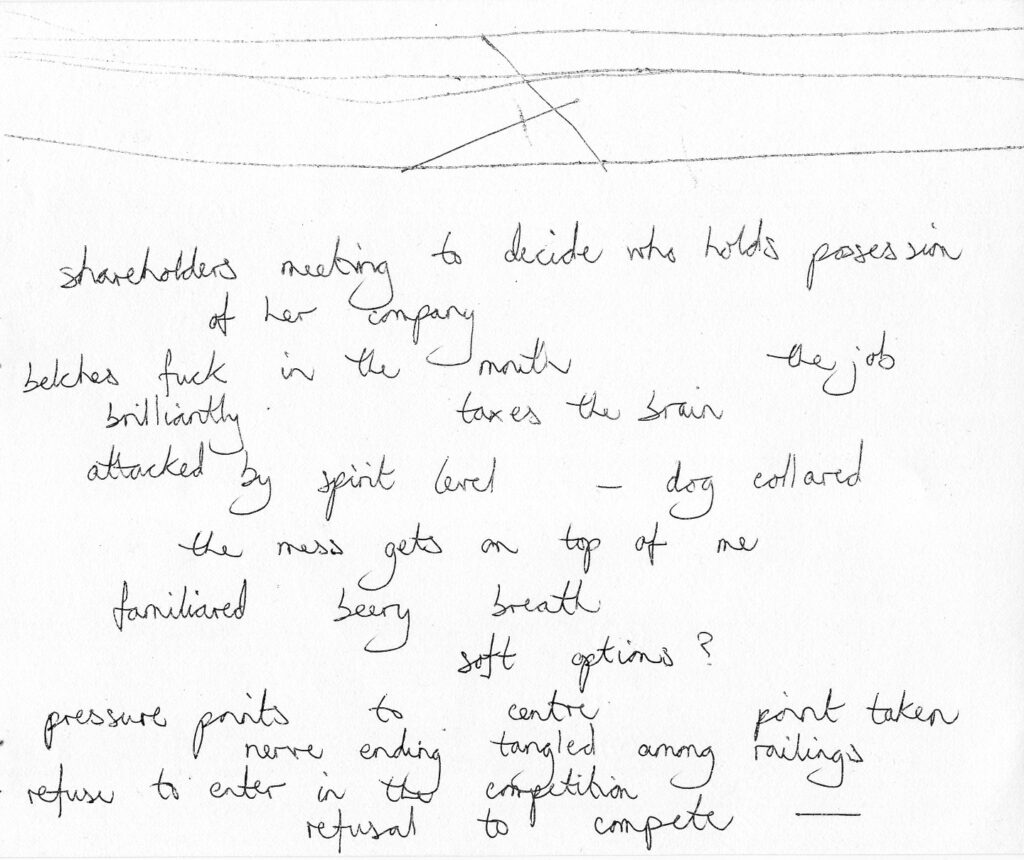 shareholders meeting to decide who holds possession
of her company
belches fuck in the mouth the job
brilliantly taxes the brain
attacked by spirit level — dog collared
the mess gets on top of me
familiared beery breath
soft options?
pressure points to centre point taken
nerve ending tangled among railings
refuse to enter in the competition
refusal to compete —